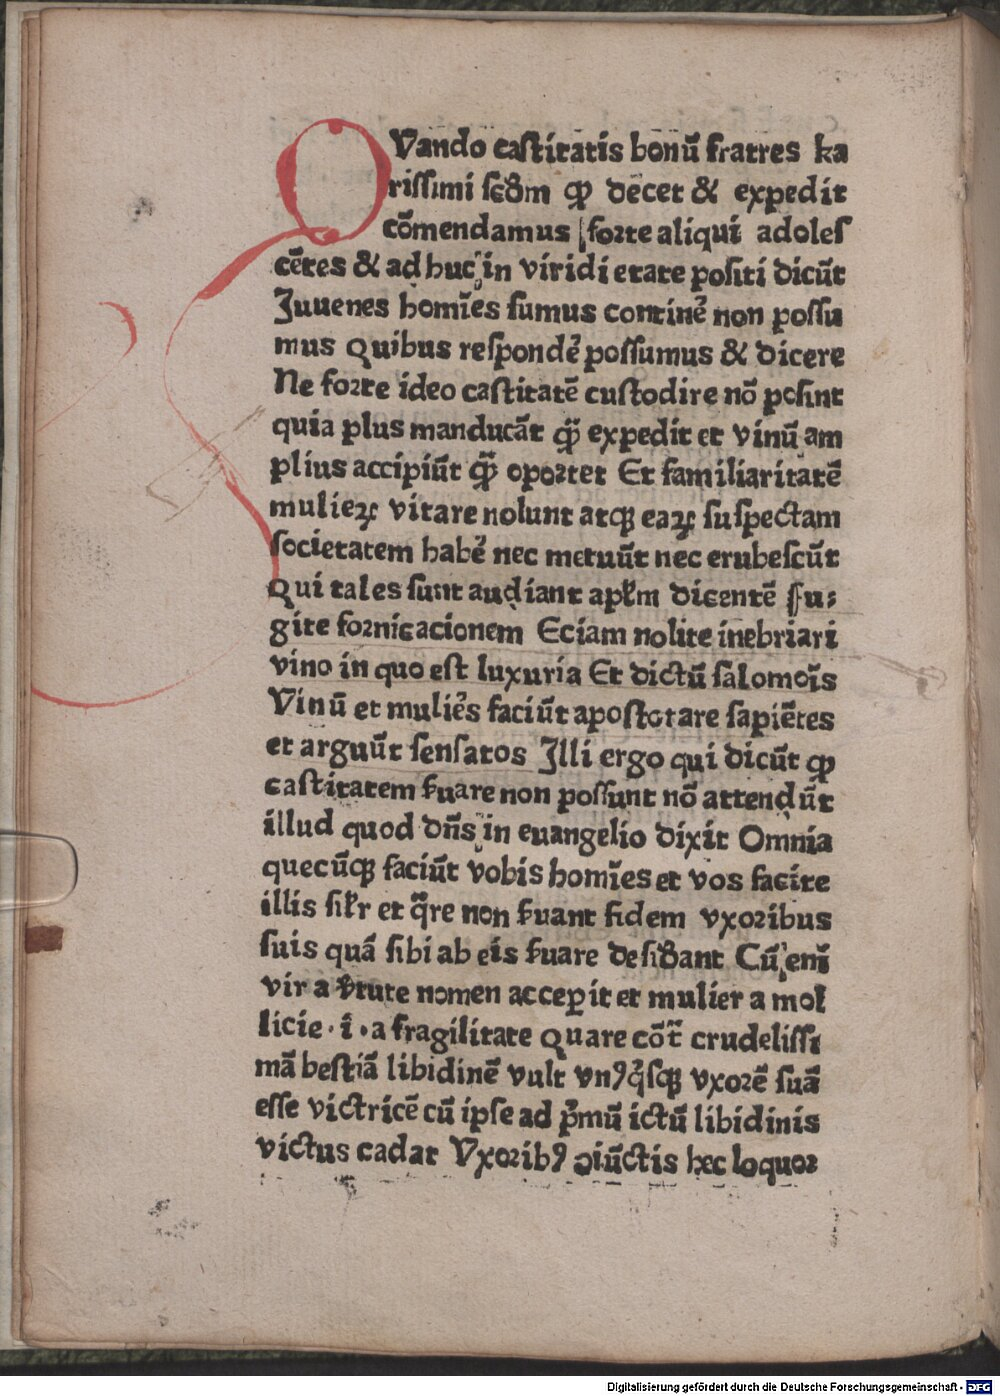 QVando castitatis bonū fratres ka
rissimi scd̄m ꝙ decet & expedit
cōmendamus forte aliqui adoles
cētes & ad huc in viridi etate positi dicūt
Juuenes homīes sumus continē non possu
mus Quibus respondē possumus & dicere
Ne forte ideo castitatē custodire nō posint
quia plus manducāt ꝙ̄ expedit et vinū am
plius accipiūt ꝙ̄ oportet Et familiaritatē
mulieꝝ vitare nolunt atqꝫ eaꝝ suspectam
societatem habē nec metuūt nec erubescūt
Qui tales sunt audiant apl̄m dicentē fu⸗
gite fornicacionem Eciam nolite inebriari
vino in quo est luxuria Et dictū salomoīs
Vinū et muliēs faciūt apostotare sapiētes
et arguūt sensatos Illi ergo qui dicūt ꝙ
castitatem ẜuare non possunt nō attendūt
illud quod dn̄s in euangelio dixit Omnia
quecūqꝫ faciūt vobis homīes et vos facite
illis sil̄r et q̄re non ẜuant fidem vxoribus
suis quā sibi ab eis ẜuare desid̄ant Cū enī
vir a v̄tute nomen acceꝑit et mulier a mol
licie · i̅ · a fragilitate Quare cōt̄ crudelissi
mā bestiā libidinē vult vnꝰqͥsqꝫ vxorē suā
esse victricē cū ipse ad pͥmū ictū libidinis
victus cadat Vxoribꝰ ꝯiūctis hec loquor
Digitalisierung gefördert durch die Deutsche Forschungsgemeinschaft - DFG